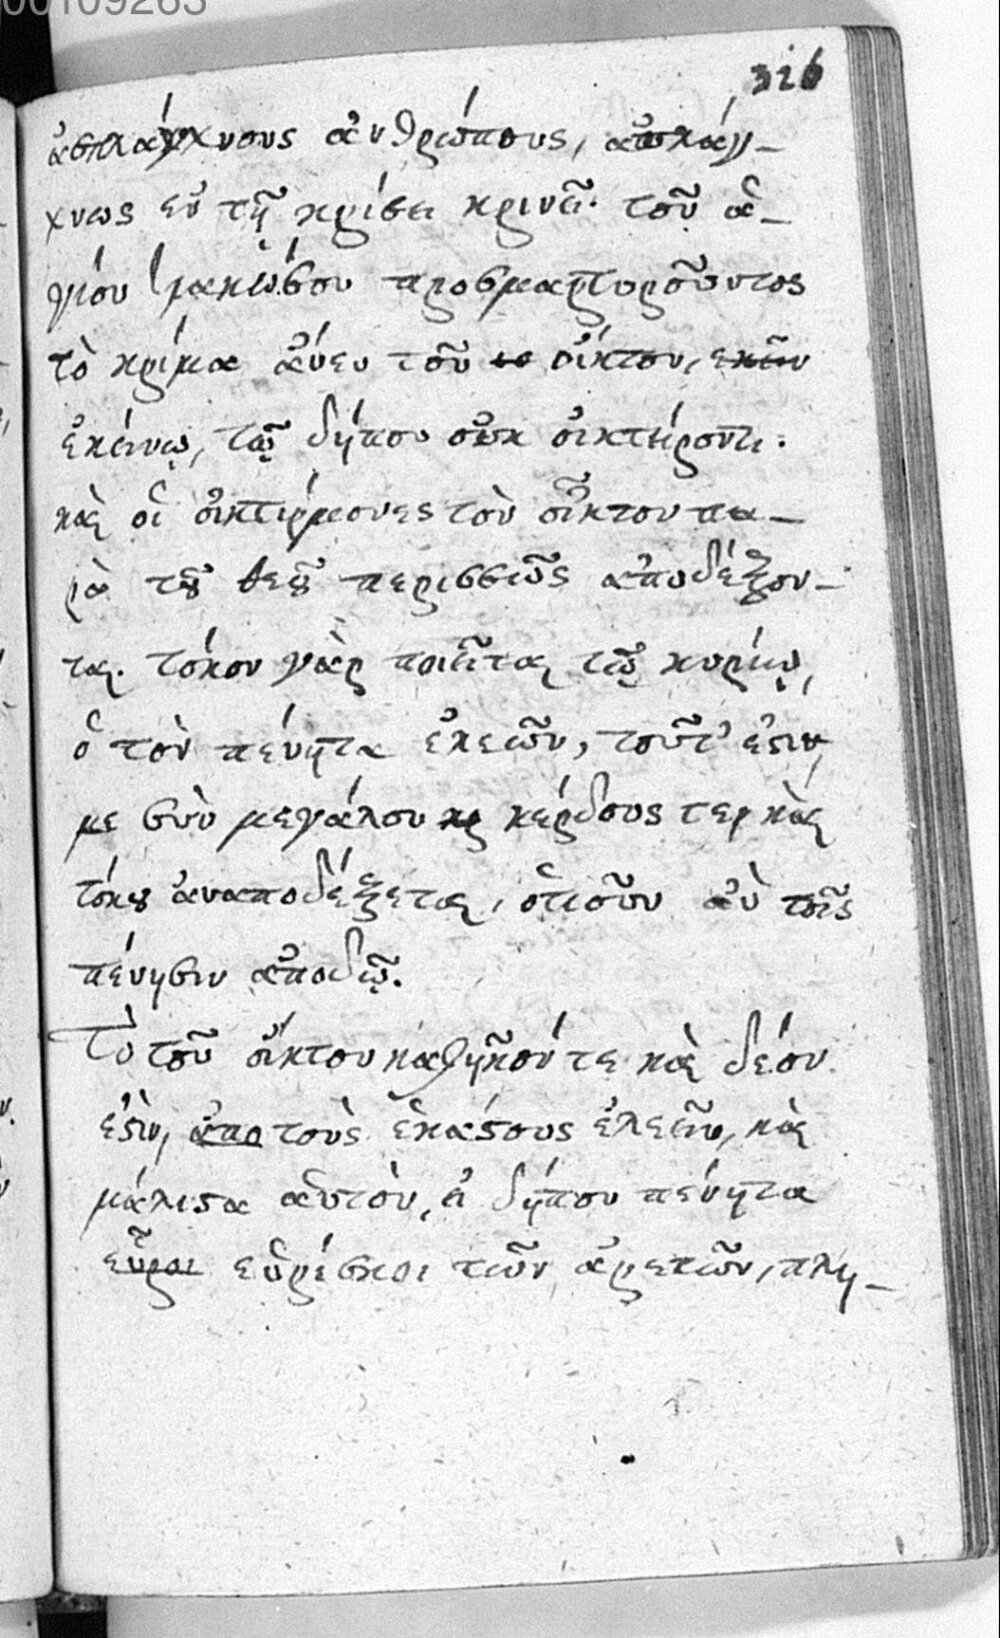 00109263
326
ἀσπλάγχνους ἀνθρώπους, ἀσπλάγ-
χνως ἐν τῇ κρίσει κρινεῖ· τοῦ ἁ-
γίου Ἰακώβου προσμαρτυροῦντος
τὸ κρίμα ἄνευ τοῦ οἴκτου,
ἐκείνῳ, τῷ δήπου οὐκ οἰκτείροντι.
καὶ οἱ οἰκτίρμονες τὸν οἶκτον πα-
ρὰ τοῦ θεοῦ περισσῶς ἀποδέξον-
ται. τόκον γὰρ ποιεῖται τῷ κυρίῳ,
ὁ τὸν πένητα ἐλεῶν, τοῦτ' ἔστιν,
με σὺν μεγάλου κέρδους τε καὶ
τόκου ἀναποδέξεται, ὁτιοῦν ἂν τοῖς
πένησιν ἀποδῷ.
Τὸ τοῦ οἴκτου καθῆκόν τε καὶ δέον
ἐστὶν, τοὺς ἑκάστους ἐλεεῖν, καὶ
μάλιστα αὐτὸν, εἰ δήπου πένητα
εὗροι εὑρίσκοι τῶν ἀρετῶν, πλη-